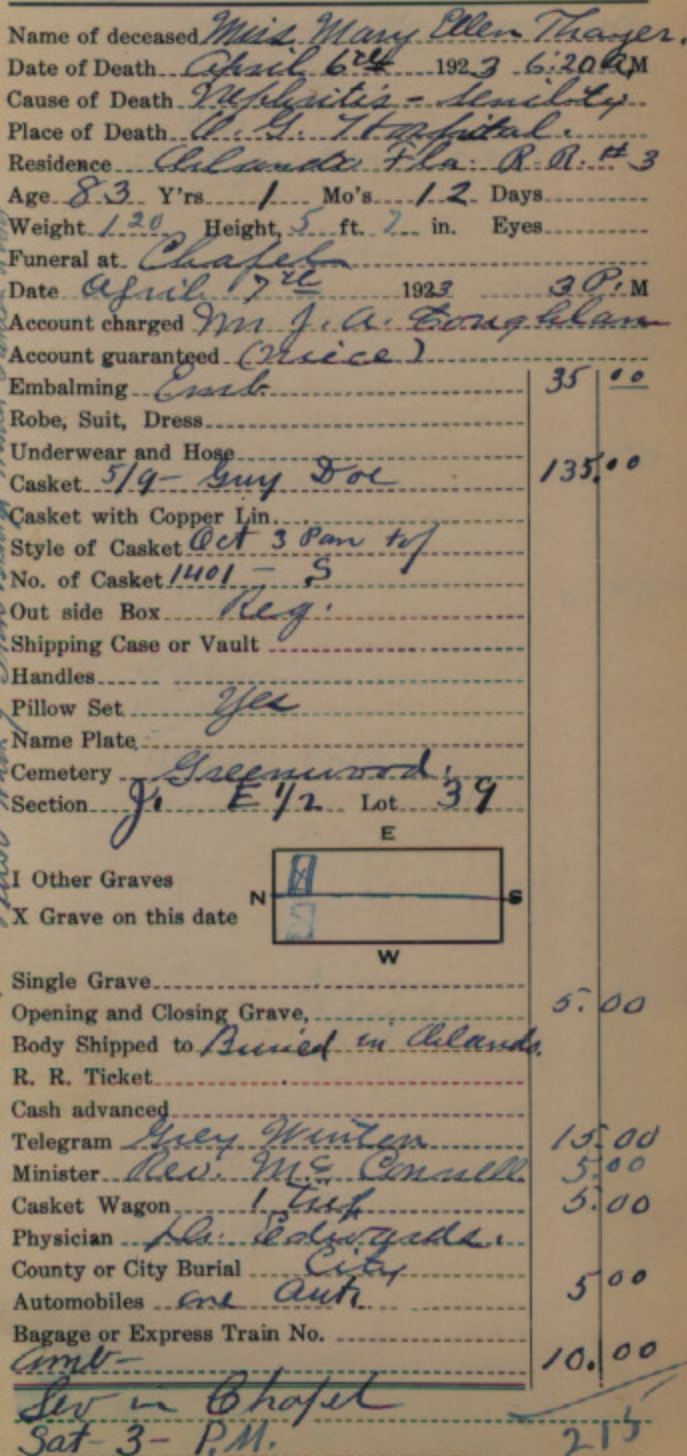 Name of deceased Miss Mary Ellen Thayer.
Date of Death April 6th 1923 6:20 A M
Cause of Death Nephritis - Senility
Place of Death O. G. Hospital.
Residence Orlando Fla. R.R. #3
Age 83 Y'rs 1 Mo's 12 Days
Weight 120 Height, 5 ft. 7 in. Eyes
Funeral at Chapel
Date April 7th 1923 3 P. M
Account charged Mr J. A. Coughlan
Account guaranteed (niece)
Embalming Emb. 35 00
Robe, Suit, Dress
Underwear and Hose
Casket 5/9 - Guy Doe 135.00
Casket with Copper Lin.
Style of Casket Oct 3 Pan top
No. of Casket 1401 - S
Out side Box Reg.
Shipping Case or Vault
Handles
Pillow Set Yes
Name Plate
Cemetery Greenwood.
Section J. E 1/2 Lot 39
E
I Other Graves
N S
X Grave on this date
W
Single Grave
Opening and Closing Grave, 5.00
Body Shipped to Buried in Orlando.
R. R. Ticket
Cash advanced
Telegram Grey Winton 15.00
Minister Rev. McConnell 5.00
Casket Wagon 1 trip 5.00
Physician Dr. Edwards.
County or City Burial City
Automobiles one Auto 5 00
Bagage or Express Train No.
Amb- 10.00
Ser in Chapel
Sat - 3 - P.M. 215